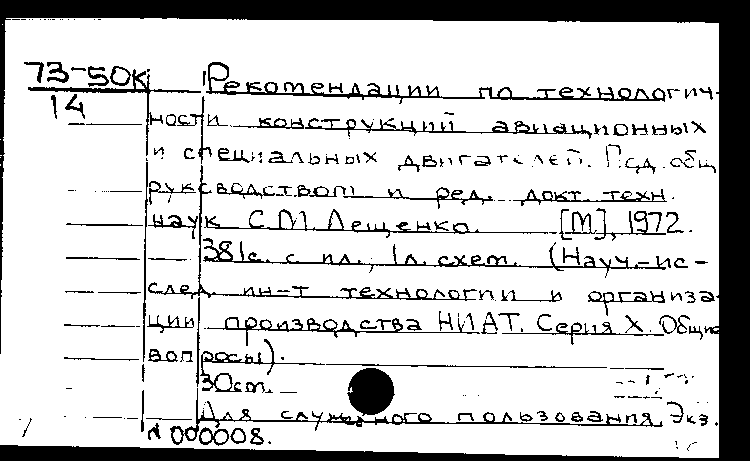 73-50К Рекомендации по технологич-
14
ности конструкций авиационных
и специальных двигателей. Под общ
руководством и ред. докт. техн.
наук С.М. Лещенко. [М.], 1972.
381с. с ил.; 1л. схем. (Науч.-ис-
след. ин-т технологии и организа-
ции производства НИАТ. Серия X. Общие
вопросы).
30см.
Для служебного пользования. Экз.
№ 000008.